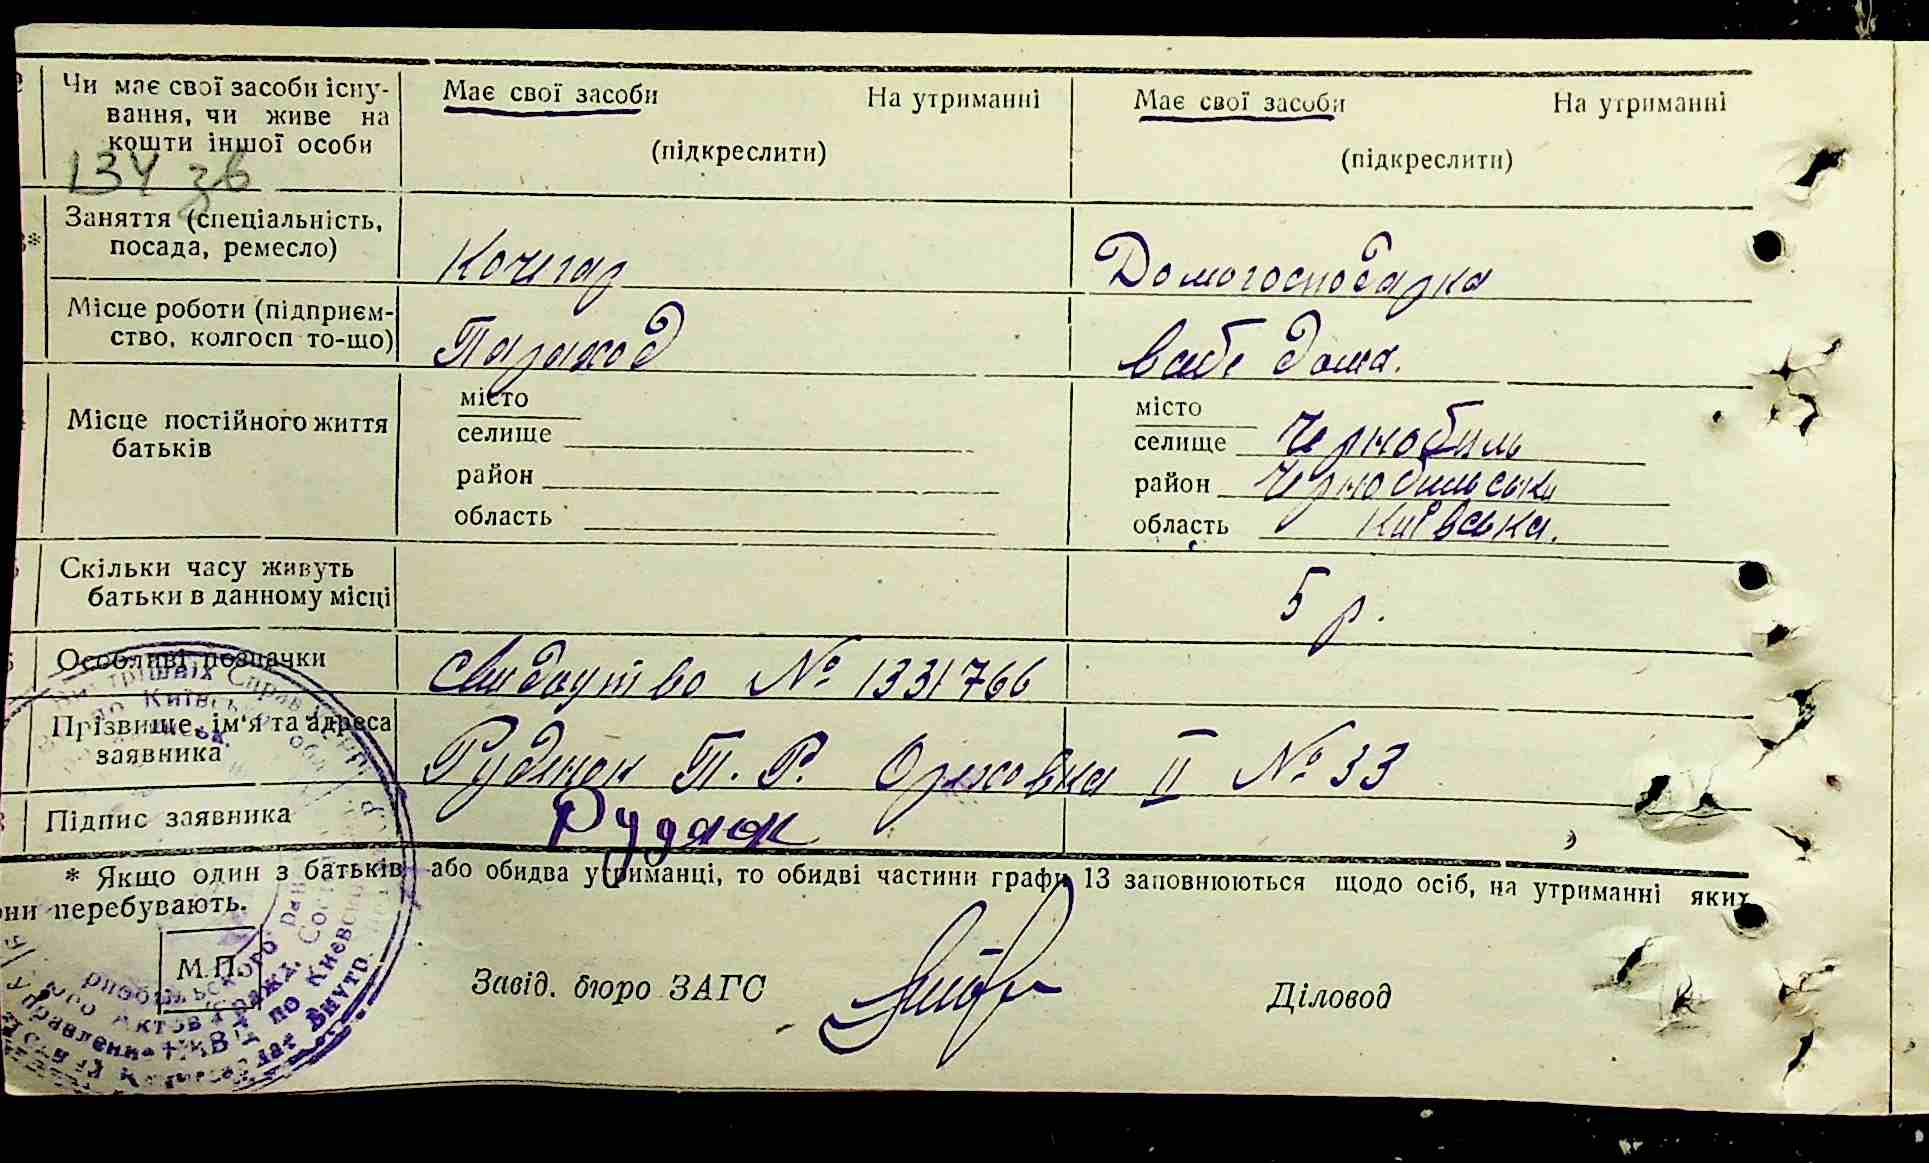 Чи має свої засоби існу-
вання, чи живе на
кошти іншої особи
134 зв
Має свої засоби На утриманні
(підкреслити)
Має свої засоби На утриманні
(підкреслити)
Заняття (спеціальність,
посада, ремесло)
Кочегар
Домогосподарка
Місце роботи (підприєм-
ство, колгосп то-що)
Пароход
в себе дома.
Місце постійного життя
батьків
місто
селище
район
область
місто
селище Чернобиль
район Чернобильськ
область Київська.
Скільки часу живуть
батьки в данному місці
5 р.
Особливі позначки
Свидоцтво № 1331766
Прізвище, ім'я та адреса
заявника
Рудяк П. Р. II № 33
Підпис заявника
Рудяк
* Якщо один з батьків або обидва утриманці, то обидві частини графи 13 заповнюються щодо осіб, на утриманні яких
они перебувають.
М.П.
Завід. бюро ЗАГС
Діловод